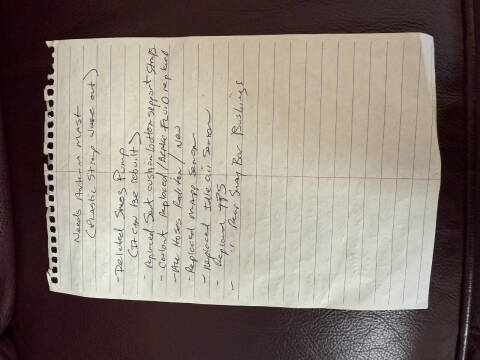 Needs Antenna mast
(Plastic strip wore out)
- Deleted Smog Pump
(It can be rebuilt)
- Replaced Seat cushion bottom support straps
- Coolant Replaced / Brake Fluid replaced
- All Hoses Radiator / New
- Replaced mapp sensor
- Replaced Idle air sensor
- Replaced TPS
- " Rear Sway Bar Bushings